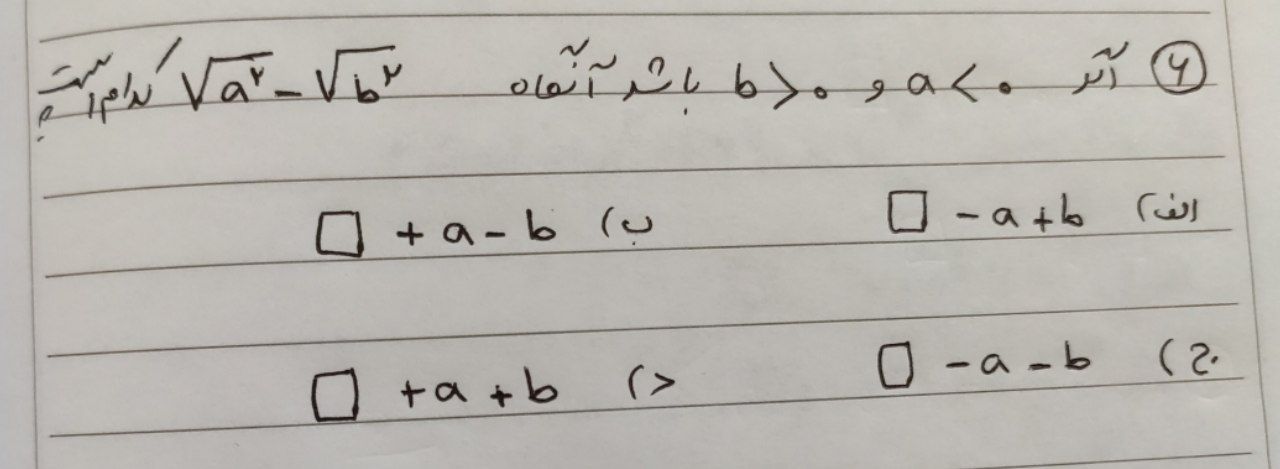 ۶) اگر a < ۰ و b > ۰ باشد آنگاه √a² - √b² کدام است؟
الف) -a + b □ ب) +a - b □
ج) -a - b □ د) +a + b □